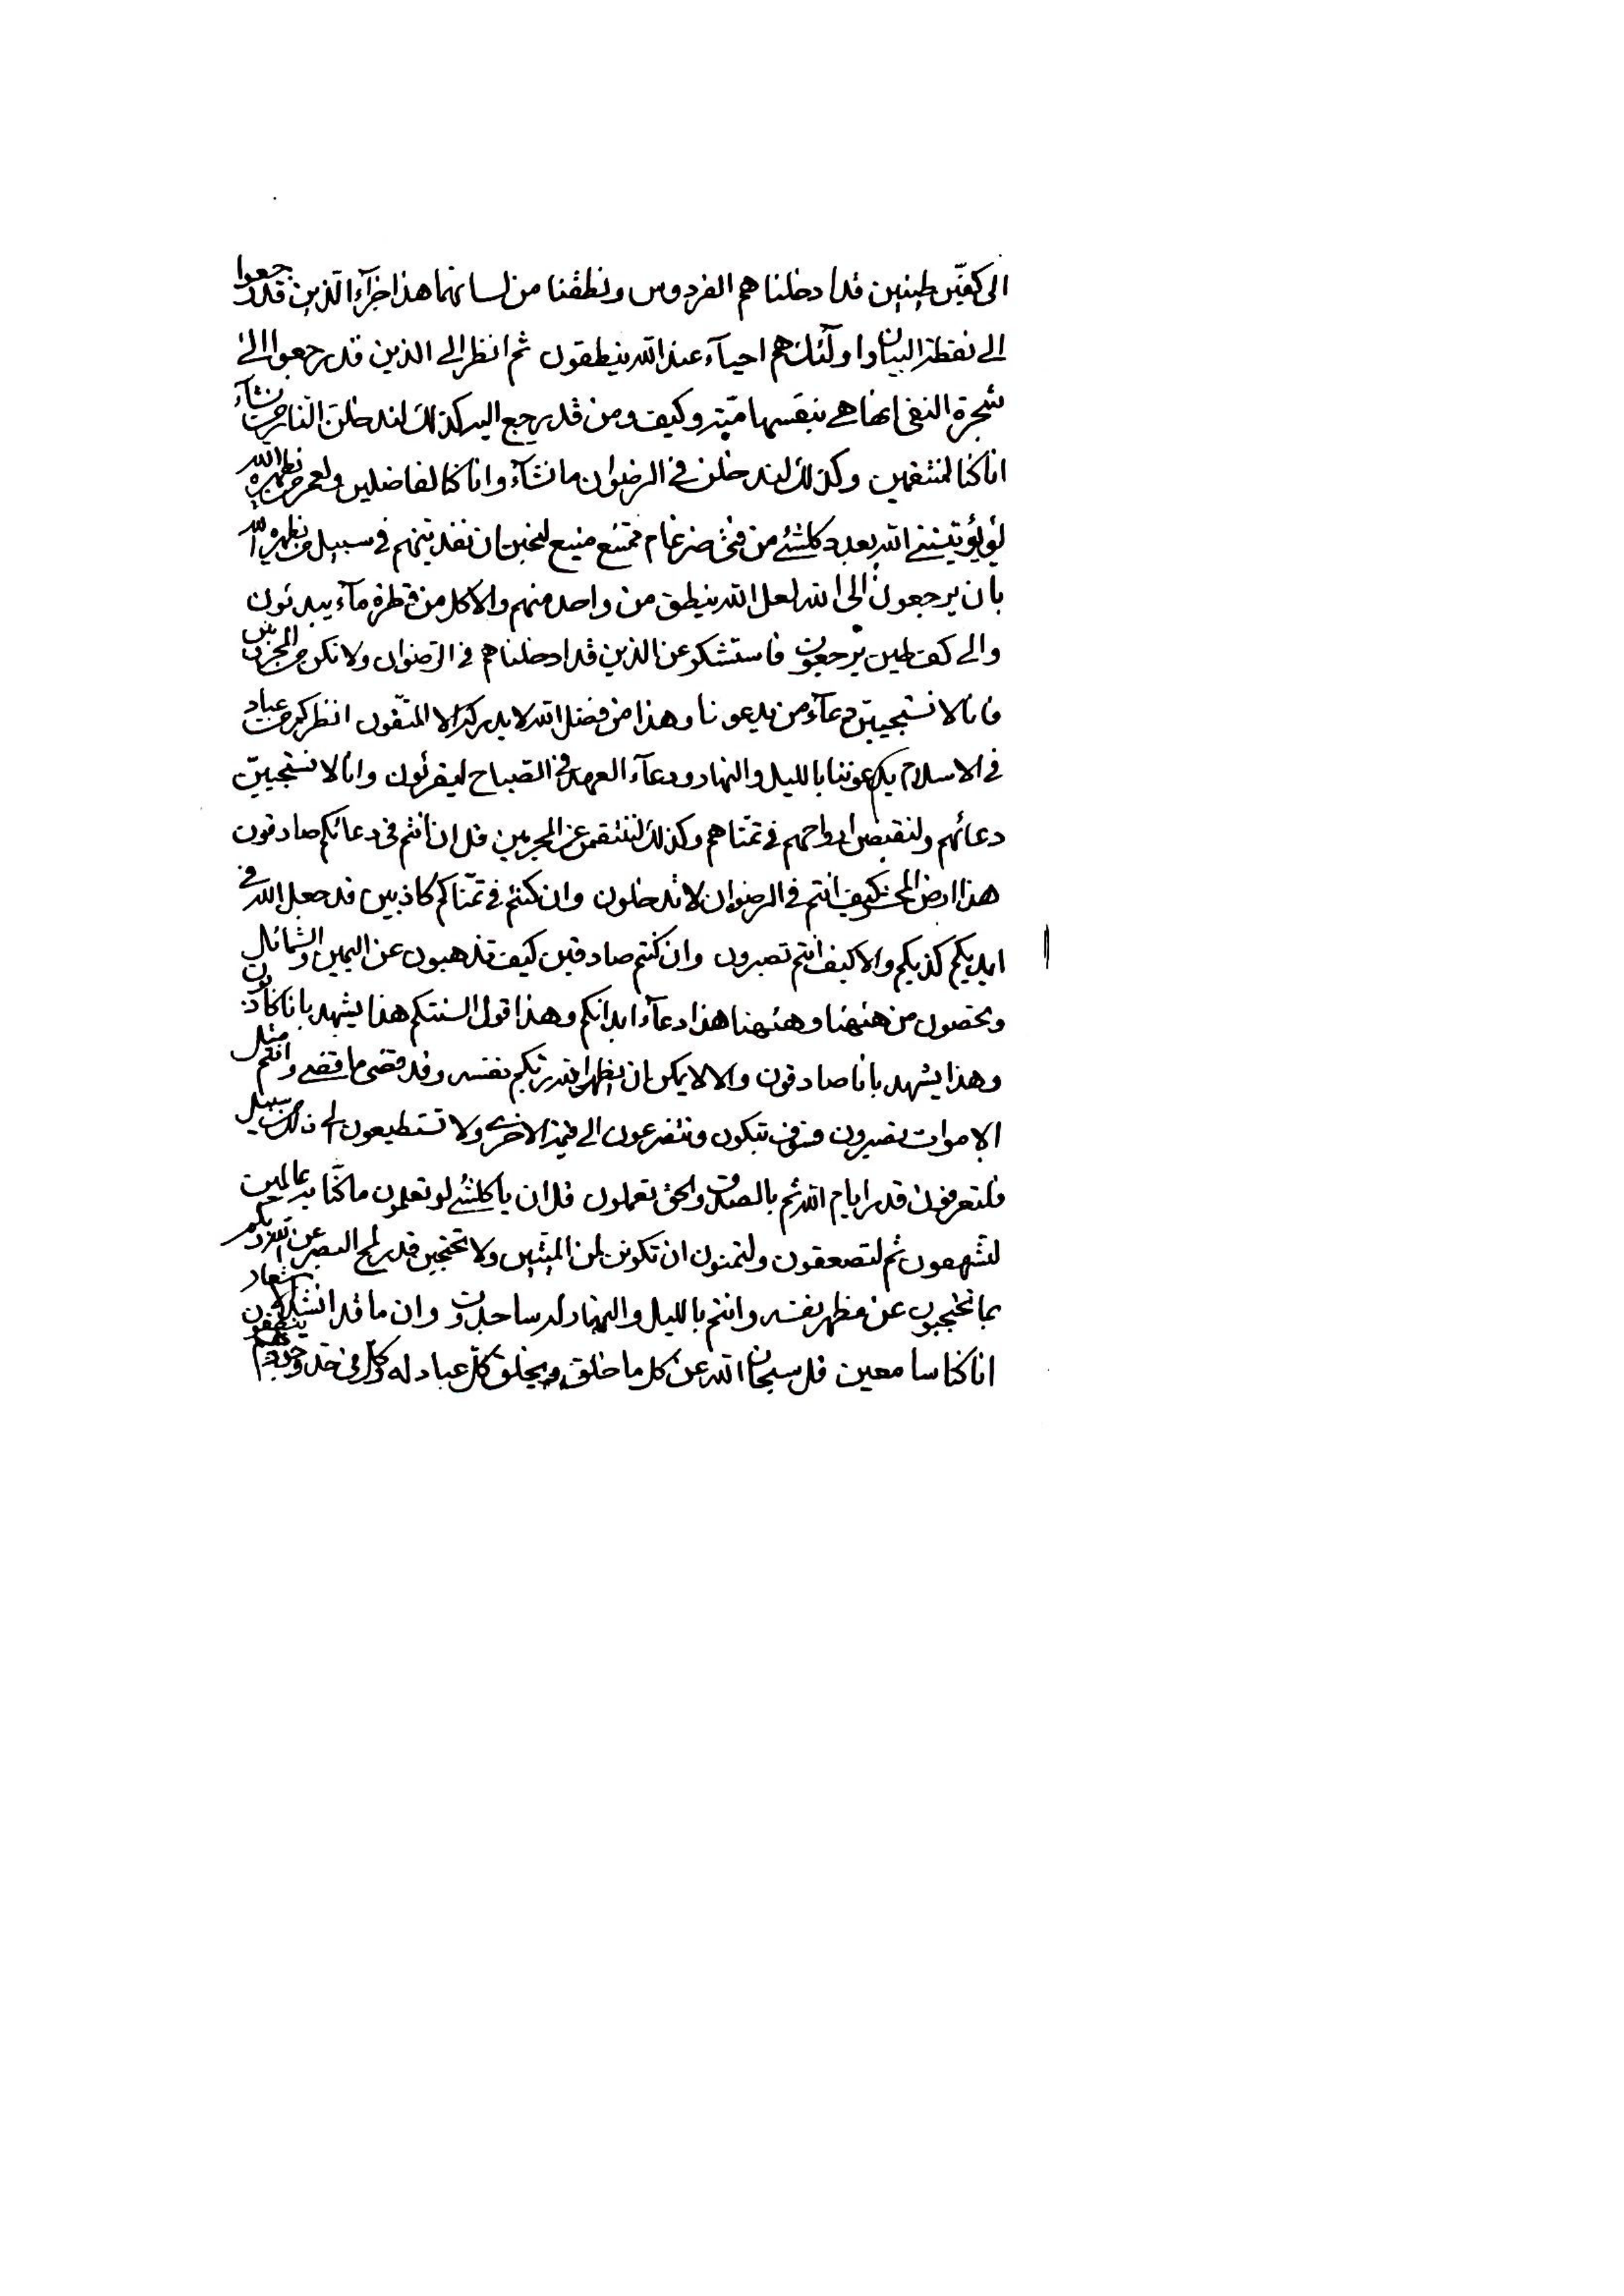 الى كفّين طينين قد ادخلناهم الفردوس ونطقنا من لسانهما هذا جزآء الذين قد رجعوا
الى نقطة البيان واولئك هم احيآء عند الله ينطقون ثم انظر الى الذين قد رجعوا الى
شجرة النفى انها هى بنفسها ميّتة وكيف ومن قد رجع اليه كذلك لندخلن النار من نشآء
انا كنا لمنتقمين وكذلك لندخلن فى الرضوان ما نشآء وانا كنا لفاضلين ولعمر من يظهره الله
لو يؤتيننى الله بعدد كلشئ من ضرغام ممتنع منيع لنحبن ان نفدينهم فى سبيل من يظهره الله
بان يرجعون الى الله لعل الله ينطق من واحد منهم والا كل من قطرة مآء يبدئون
والى كف طين يرجعون فاستشكر عن الذين قد ادخلناهم فى الرضوان ولا تكن من المحزنين
فانا لا نستجيبن دعآء من يدعونا وهذا من فضل الله لا يدركه الا المتّقون انظر كم من عباد
فى الاسلام يدعوننا بالليل والنهار ودعآء العهد فى الصّباح ليقرئون وانا لا نستجيبنّ
دعائهم ولنقبضن ارواحهم فى تمنّاهم وكذلك لننتقمن عن المجرمين قل ان انتم فى دعائكم صادقون
هذا ارض كيف انتم فى الرضوان لا تدخلون وان كنتم فى تمنّاكم كاذبين قد جعل الله فى
ايديكم كذبكم والا كيف انتم تصبرون وان كنتم صادقين كيف تذهبون عن اليمين والشمائل
من ههنا وههنا هذا دعآء ابدانكم وهذا قول السنتكم هذا يشهد بانا كاذبون
وهذا يشهد بانا صادقون والا لا يمكن ان يظهر الله ربكم نفسه وقد قضى ما قضى وانتم مثل
الاموات تصيرون فسوف تبكون وتتضرعون الى قيمة الاخرى ولا تستطيعون الى ذلك من سبيل
فلتعرفون قدر ايام الله ثم بالصدق والحق تعملون قل ان يا كلشئ لو تعلمون ما كنّا به عالمين
لتشهقون ثم لتصعقون ولتمنون ان تكونن لمن الميّتين ولا تحتجبن قدر لمح البصر عن الله ربكم
بما تحتجبون عن مظهر نفسه وانتم بالليل والنهار له ساجدون وان ما قد
انا كنا سامعين قل سبحان الله عن كل ما خلق ويخلق كلّ عباد له وكلّ فى حد